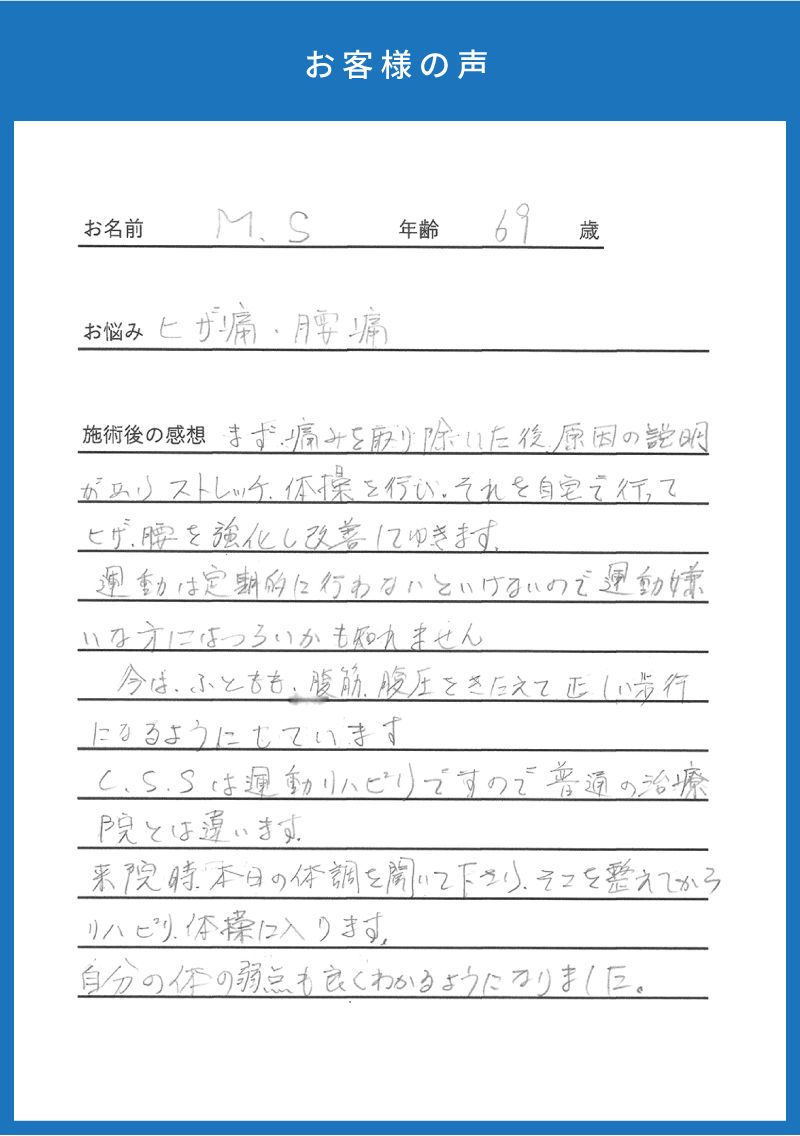 お客様の声
お名前 M.S 年齢 69 歳
お悩み ヒザ痛・腰痛
施術後の感想 まず、痛みを取り除いた後、原因の説明
があり ストレッチ、体操を行い、それを自宅で行って
ヒザ、腰を強化し改善してゆきます。
運動は定期的に行わないといけないので運動嫌
いな方にはつらいかも知れません
今は、ふともも、腹筋、腹圧をきたえて正しい歩行
になるようにしています
C.S.Sは運動リハビリですので普通の治療
院とは違います。
来院時、本日の体調を聞いて下さり、そこを整えてから
リハビリ、体操に入ります。
自分の体の弱点も良くわかるようになりました。